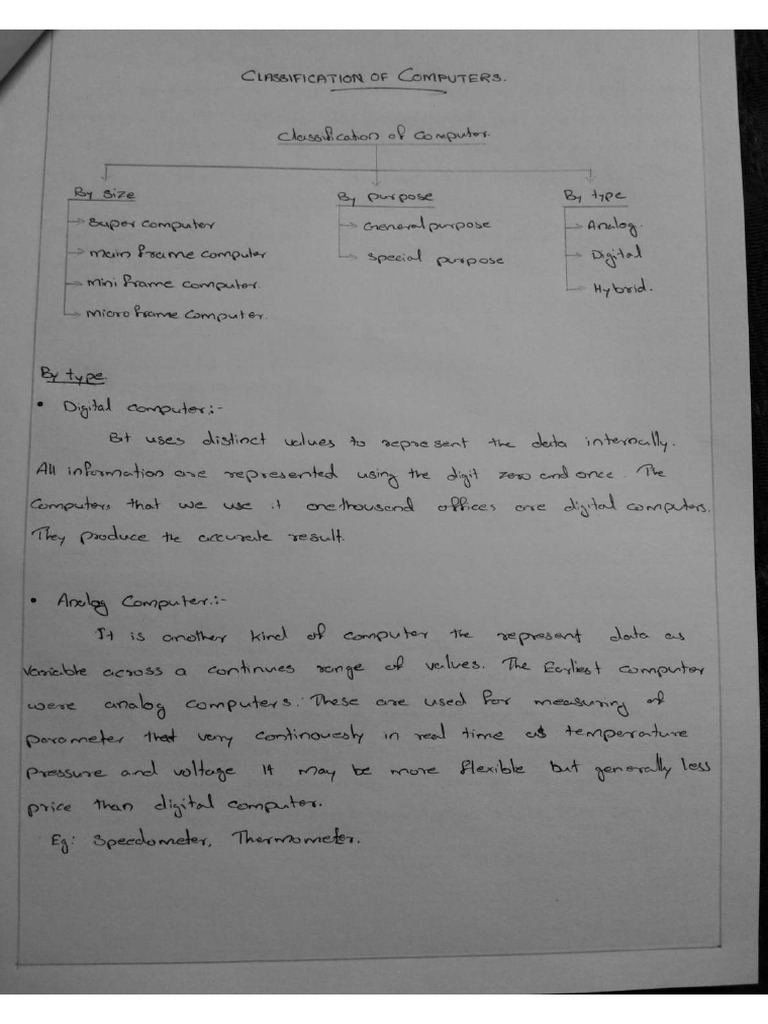 CLASSIFICATION OF COMPUTERS.
Classification of computer.
By size By purpose By type
Super computer General purpose Analog.
main frame computer special purpose Digital
mini frame computer. Hybrid.
micro frame computer.
By type
• Digital computer:-
Bt uses distinct values to represent the data internally.
All information are represented using the digit zero and once. The
Computers that we use it onethousand offices are digital computers.
They produce the accurate result.
• Analog Computer:-
It is another kind of computer the represent data as
variable across a continues range of values. The Earliest computer
were analog computers. These are used for measuring of
parameter that vary continouesly in real time as temperature
pressure and voltage It may be more flexible but generally less
price than digital computer.
Eg: Speedometer, Thermometer.